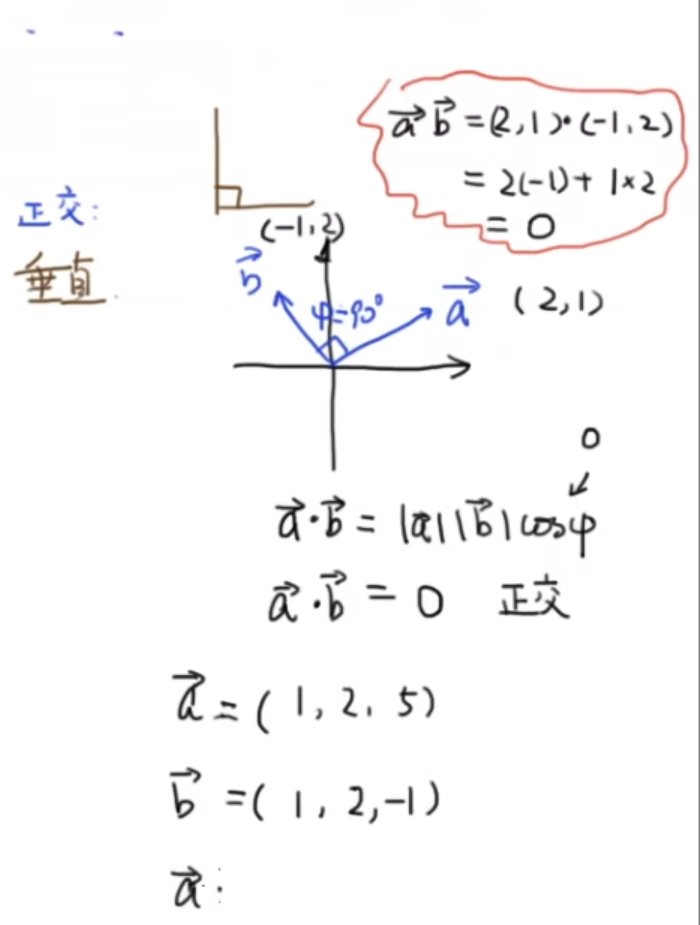 $\vec{a}\vec{b}=(2,1)\cdot(-1,2)$
$=2(-1)+1\times2$
$=0$
正交:
垂直
(-1,2)
$\vec{b}$
φ=90°
$\vec{a}$ (2,1)
0
↙
$\vec{a}\cdot\vec{b}=|\vec{a}||\vec{b}|\cos\varphi$
$\vec{a}\cdot\vec{b}=0$ 正交
$\vec{a}=(1,2,5)$
$\vec{b}=(1,2,-1)$
$\vec{a}\cdot$